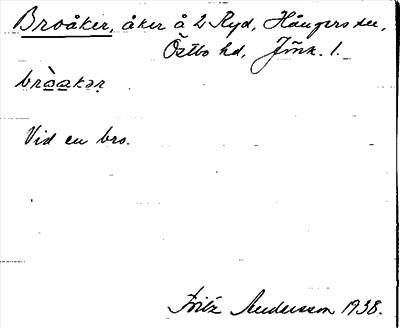 Broåker, åker å 2 Ryd, Hångers sn,
Östbo hd, Jönk. l.
brò̲a̲kər
Vid en bro.
Fritz Andersson 1938.